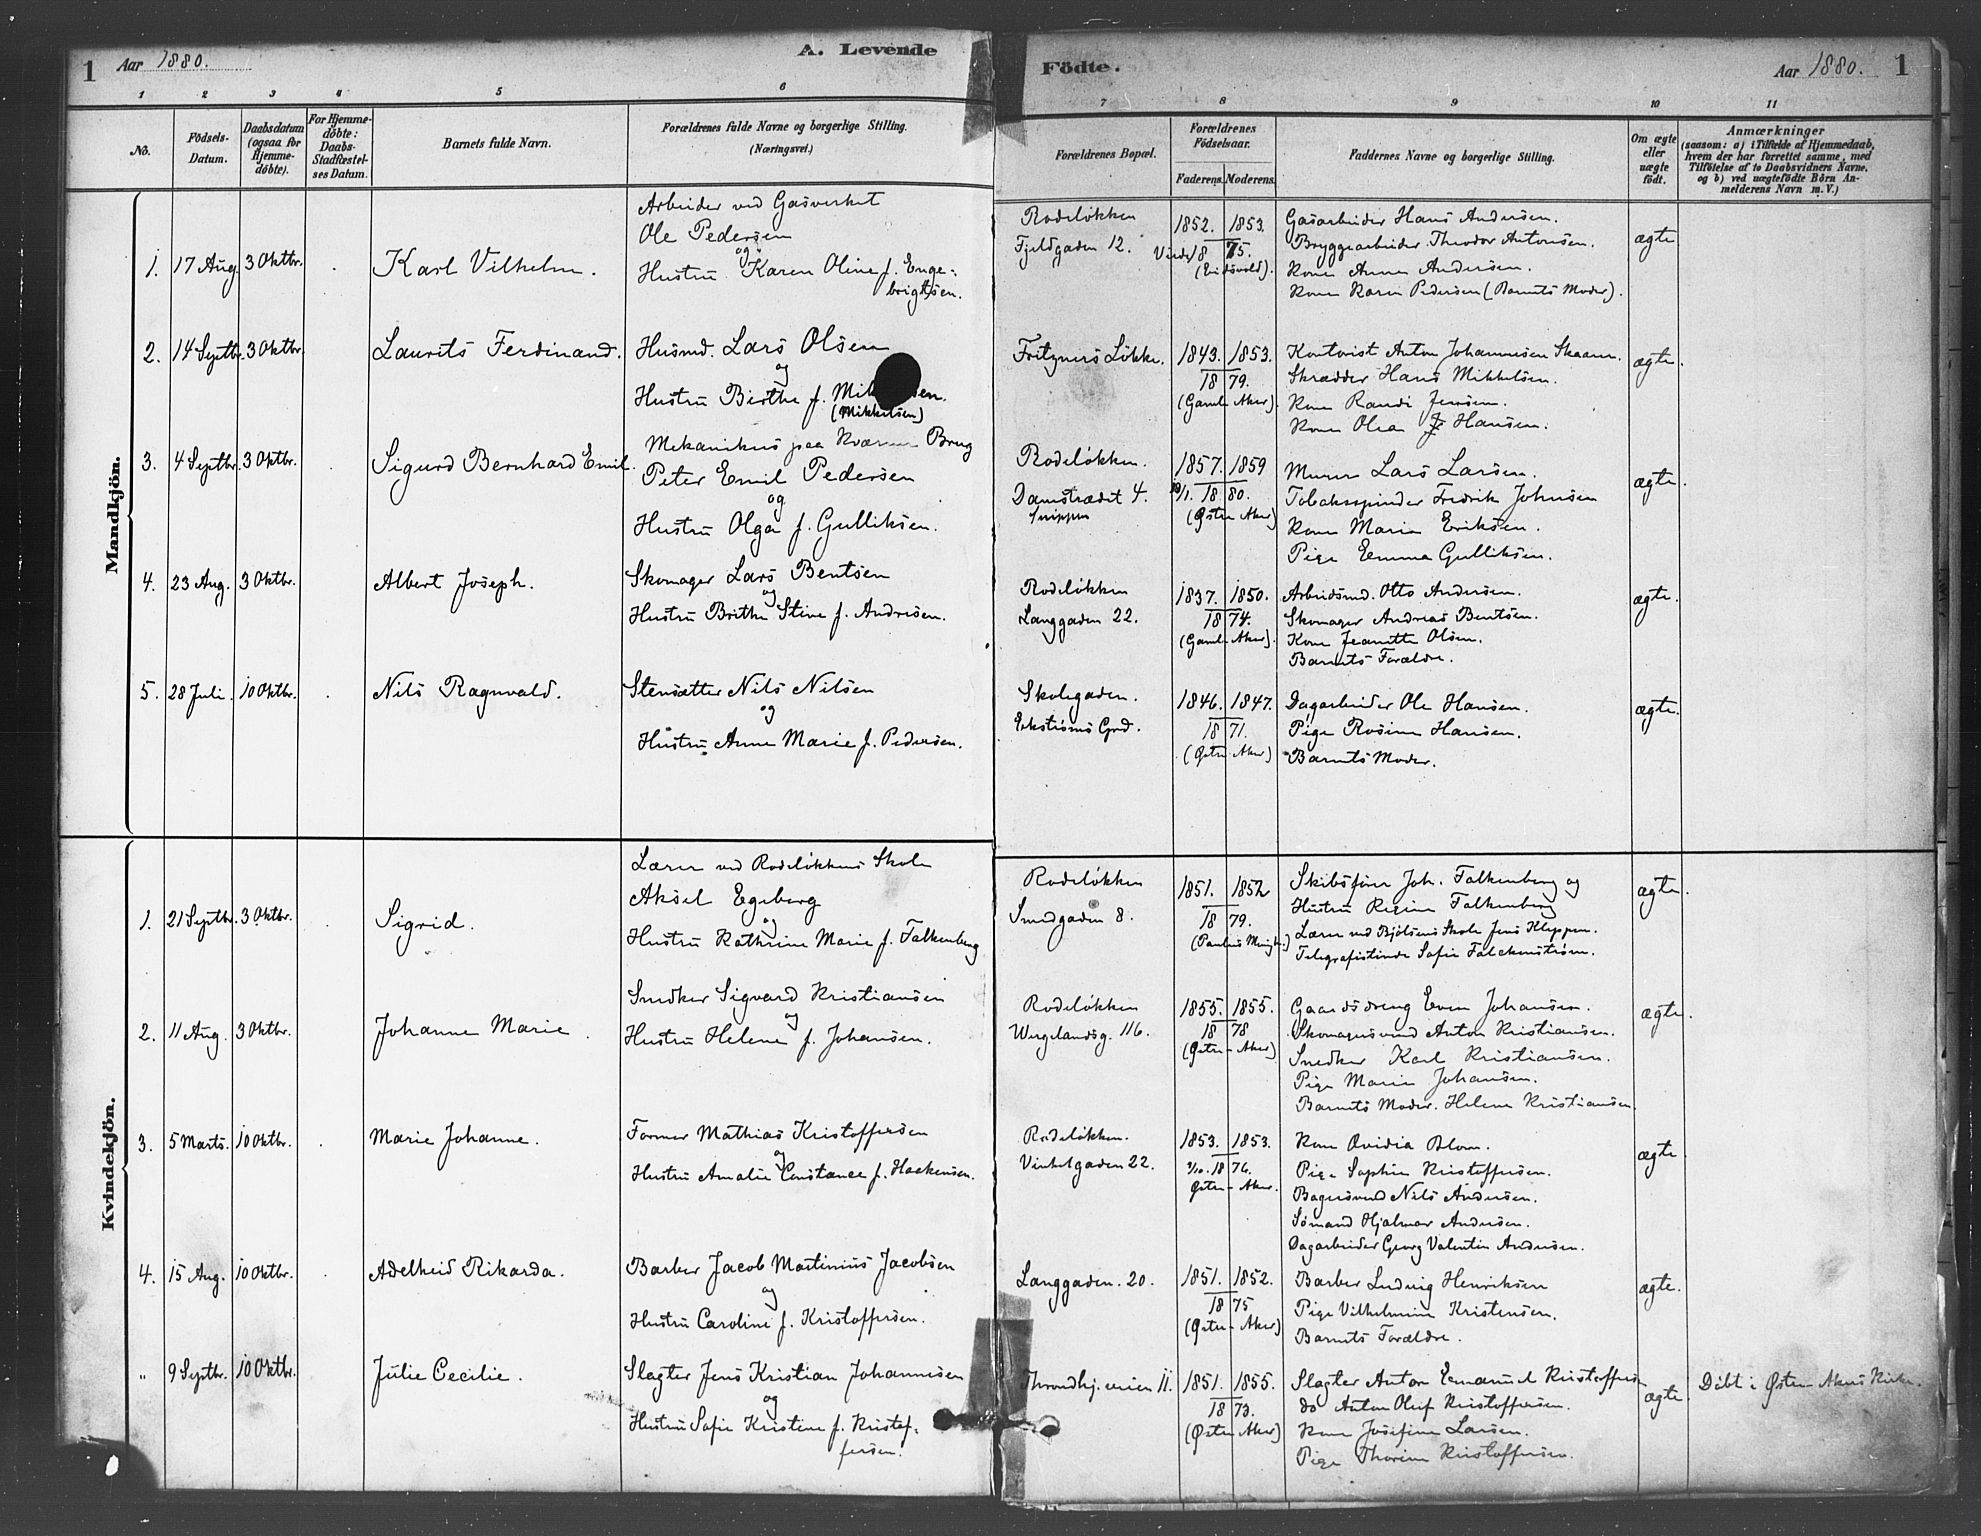 1 Aar 1880. A. Levende
1 2 3 4 5 6
No.
Födsels-Datum.
Daabsdatum (ogsaa for Hjemme-döbte).
For Hjemme-döbte: Daabs-Stadfæstel-ses Datum.
Barnets fulde Navn.
Forældrenes fulde Navne og borgerlige Stilling.
(Næringsvei.)
Mandkjön.
Arbeider ved Gasverket
Ole Pedersen
og
1. 17 Aug. 3 Oktbr. Karl Vilhelm. Hustru Karen Oline f. Enge=
brigtsen.
2. 14 Septbr. 3 Oktbr. Laurits Ferdinand. Husmd. Lars Olsen
og
Hustru Birthe f.
(Mikkelsen)
Mekanikus paa Kværner Brug
3. 4 Septbr. 3 Oktbr. Sigurd Bernhard Emil. Peter Emil Pedersen
og
Hustru Olga f. Gulliksen.
4. 23 Aug. 3 Oktbr. Albert Joseph. Skomager Lars Bentsen
og
Hustru Brithe Stine f. Andresen.
5. 28 Juli. 10 Oktbr. Nils Ragnvald. Stensætter Nils Nilsen
og
Hustru Anne Marie f. Pedersen.
Kvindekjön.
Lærer ved Rodeløkkens Skole
Aksel Egeberg
og
1. 21 Septbr. 3 Oktbr. Sigrid. Hustru Kathrine Marie f. Falkenberg
Snedker Sigvard Kristiansen
og
2. 11 Aug. 3 Oktbr. Johanne Marie. Hustru Helene f. Johansen.
3. 5 Marts. 10 Oktbr. Marie Johanne. Former Mathias Kristoffersen
og
Hustru Amalie Constance f. Haakensen.
4. 15 Aug. 10 Oktbr. Adelheid Rikarda. Barber Jacob Martinius Jacobsen
og
Hustru Caroline f. Kristoffersen.
" 9 Septbr. 10 Oktbr. Julie Cecilie. Slagter Jens Kristian Johannesen
og
Hustru Sofie Kristine f. Kristof-
fersen.
Födte. Aar 1880. 1
7 8 9 10 11
Forældrenes Bopæl.
Forældrenes Födselsaar.
Faderens. Moderens.
Faddernes Navne og borgerlige Stilling.
Om ægte eller uægte födt.
Anmærkninger
(saasom: a) i Tilfælde af Hjemmedaab,
hvem der har forrettet samme, med
Tilföielse af to Daabsvidners Navne,
og b) ved uægtefödte Börn An-
melderens Navn m. V.)
Rodeløkken 1852. 1853. Gasarbeider Hans Andersen.
Fjeldgaden 12. 18 75. Bryggearbeider Theodor Antonsen. ægte
(Eidsvold). Kone Anne Andersen.
Kone Karen Pedersen (Barnets Moder).
Fritzners Løkke. 1843. 1853. Kontorist Anton Johannesen Skaarer. ægte.
18 79. Skrædder Hans Mikkelsen.
(Gamle Aker). Kone Randi Jensen.
Kone Olea Hansen.
Rodeløkken. 1857. 1859 Murer Lars Larsen. ægte.
Damstrædet 4. 18 80. Tobaksspinder Fredrik Johnsen
(Østre Aker) Kone Marie Eriksen.
Pige Emma Gulliksen.
Rodeløkken 1837. 1850. Arbeidsmd. Otto Andersen. ægte.
Langgaden 22. 18 74. Skomager Andreas Bentsen.
(Gamle Aker). Kone Jeanette Olsen.
Barnets Forældre.
Skolegaden. 1846. 1847. Dagarbeider Ole Hansen. ægte.
Ekstrøms Grd. 18 71. Pige Rosine Hansen.
(Østre Aker) Barnets Moder.
Rodeløkken 1851. 1852 Skibsfører Joh. Falkenberg og ægte.
Smedgaden 8. 18 79. Hustru Regine Falkenberg
(Paulus Menigh.) Lærer ved Bjølsens Skole Jens Kleppen.
Telegrafistinde Sofie Falckenstrøm.
Rodeløkken 1855. 1855. Gaardsdreng Even Johansen. ægte.
Wergelandsg. 116. 18 78 Skomagersvend Anton Kristiansen.
(Østre-Aker) Snedker Karl Kristiansen.
Pige Marie Johansen.
Barnets Moder. Helene Kristiansen.
Rodeløkken. 1853. 1853. Kone Ovidia Blom. ægte.
Vinkelgaden 22. 18 76. Pige Sophie Kristoffersen.
Østre-Aker. Bagersvend Nils Andersen.
Sømand Hjalmar Andersen.
Dagarbeider Georg Valentin Andersen.
Langgaden. 20. 1851. 1852. Barber Ludvig Henriksen ægte.
18 75 Pige Vilhelmine Kristensen.
(Østre-Aker) Barnets Forældre.
Throndhj.veien 11. 1851. 1855. Slagter Anton Emanuel Kristoffersen ægte. Döbt i Østre Akers Kirke.
18 73. do Anton Oluf Kristoffersen.
(Østre Aker) Kone Josefine Larsen.
Pige Thorine Kristoffersen.